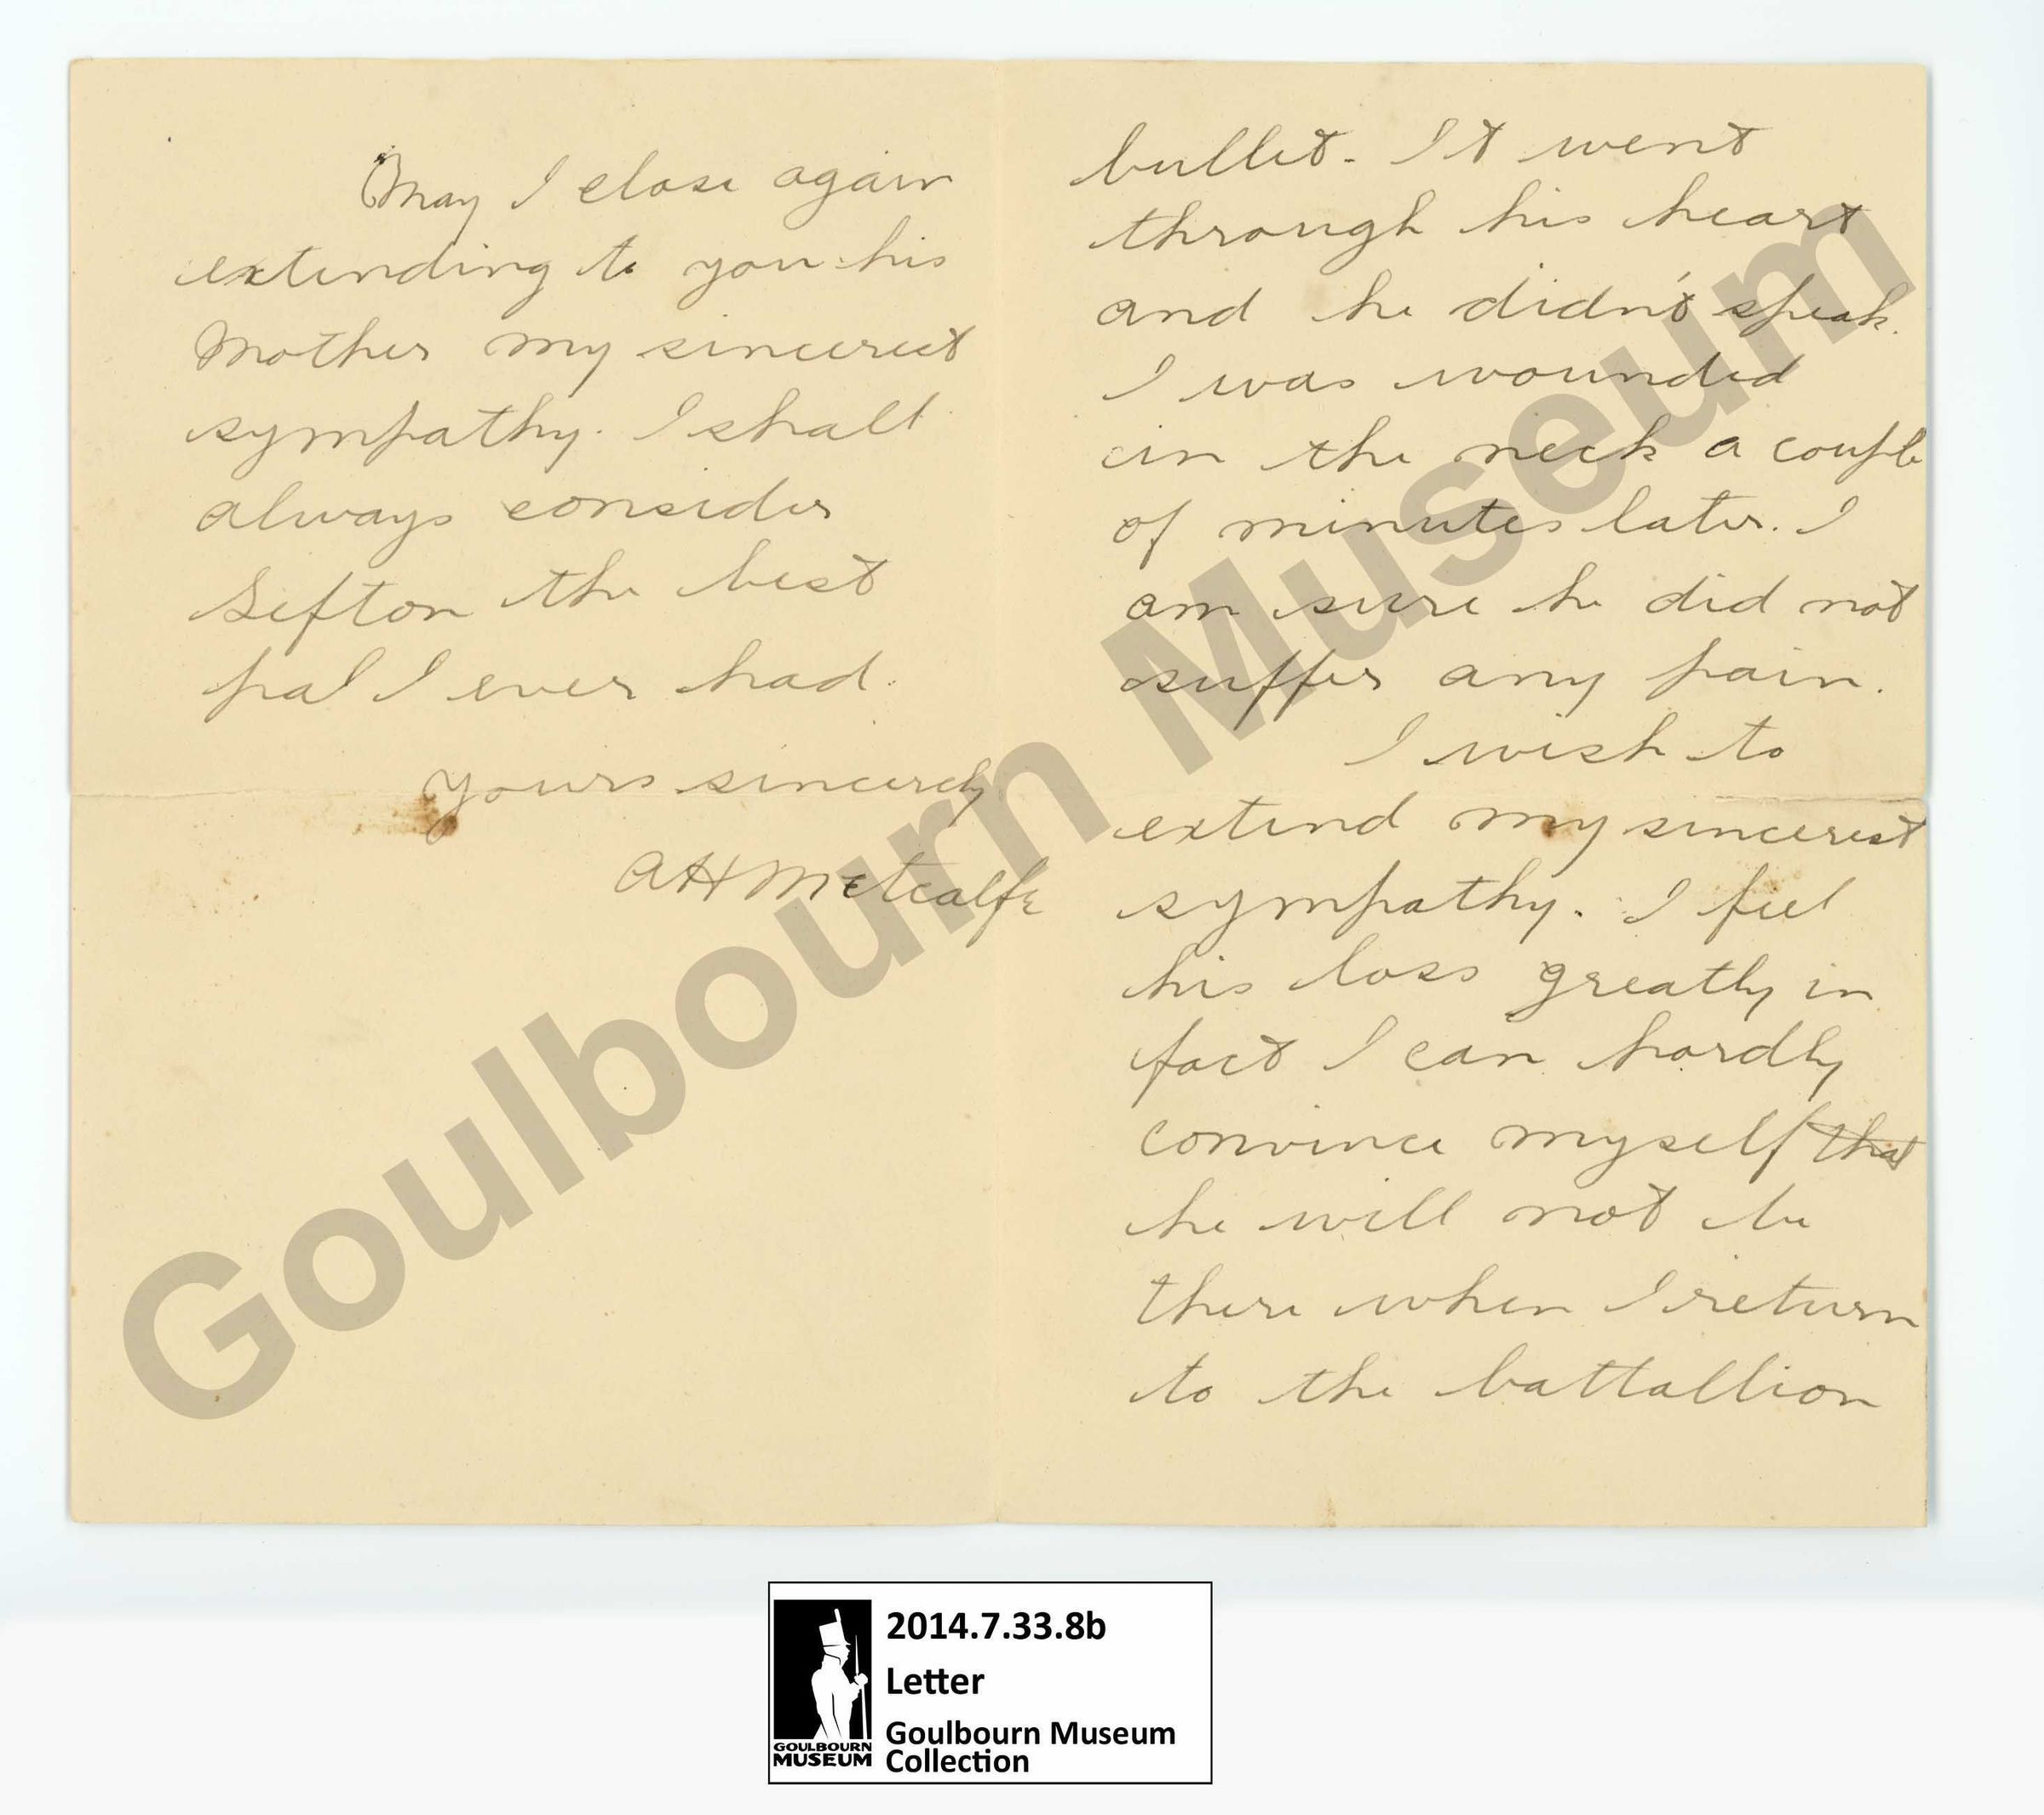 May I close again
extending to you his
Mother my sincerest
sympathy. I shall
always consider
Sefton the best
pal I ever had.
Yours sincerely
AH Metcalfe
bullet. It went
through his heart
and he didn't speak.
I was wounded
in the neck a couple
of minutes later. I
am sure he did not
suffer any pain.
I wish to
extend my sincerest
sympathy. I feel
his loss greatly in
fact I can hardly
convince myself that
he will not be
there when I return
to the battallion
Goulbourn Museum
GOULBOURN
MUSEUM
2014.7.33.8b
Letter
Goulbourn Museum
Collection